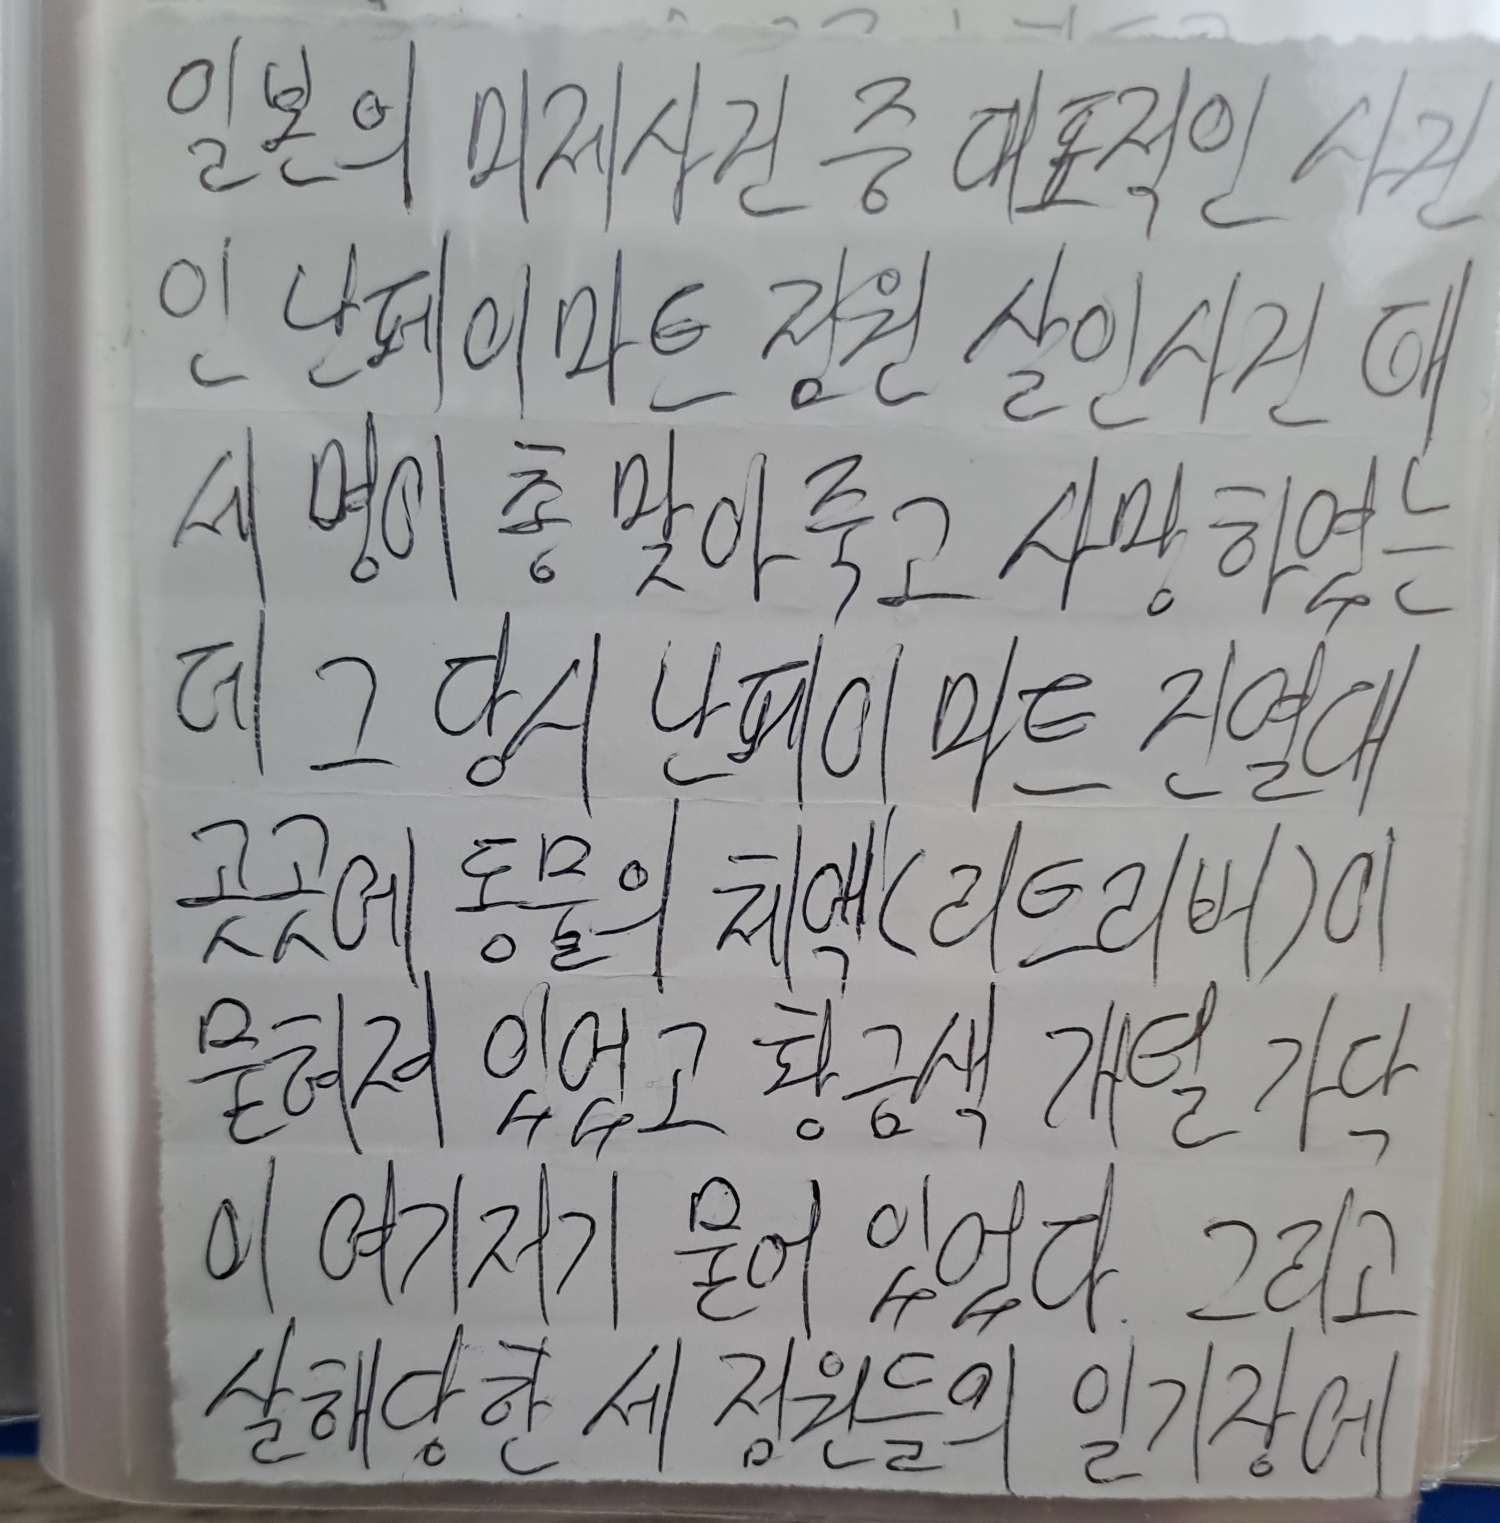 일본의 미제사건 중 대표적인 사건
인 난페이마트 점원 살인사건 때
세 명이 총 맞아 죽고 사망 하였는
데 그 당시 난페이 마트 진열대
곳곳에 동물의 체액(리트리버)이
묻혀져 있었고 황금색 개털 가닥
이 여기저기 묻어 있었다. 그리고
살해당한 세 점원들의 일기장에